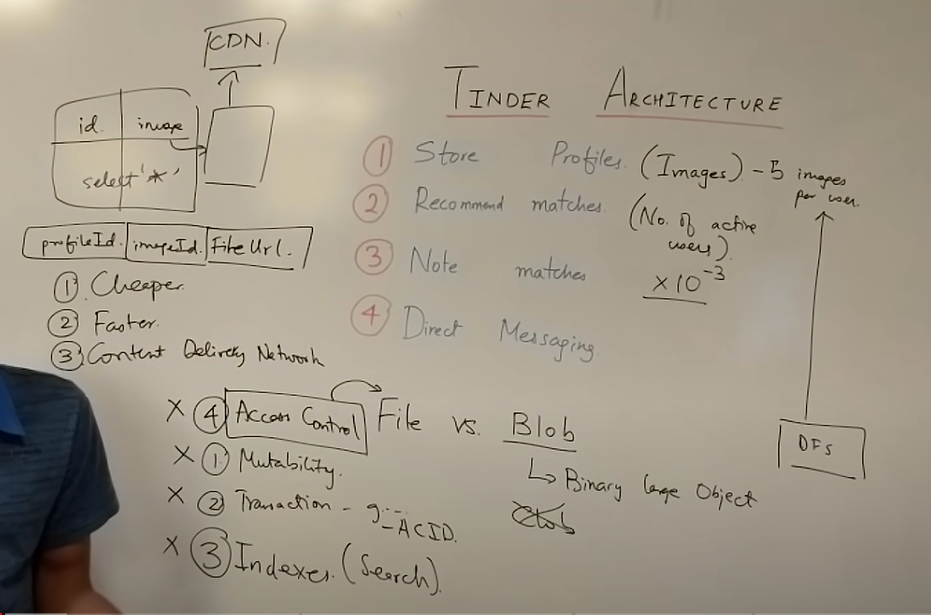 CDN.
id. image
select '*'
profileId. imageId. FileUrl.
① Cheaper.
② Faster.
③ Content Delivery Network
TINDER ARCHITECTURE
① Store Profiles. (Images) - 5 images per user.
② Recommend matches (No. of active users).
③ Note matches × 10⁻³
④ Direct Messaging.
File vs. Blob
↳ Binary large Object
× ④ Access Control
× ① Mutability.
× ② Transaction -
- ACID.
× ③ Indexes. (Search).
DFS